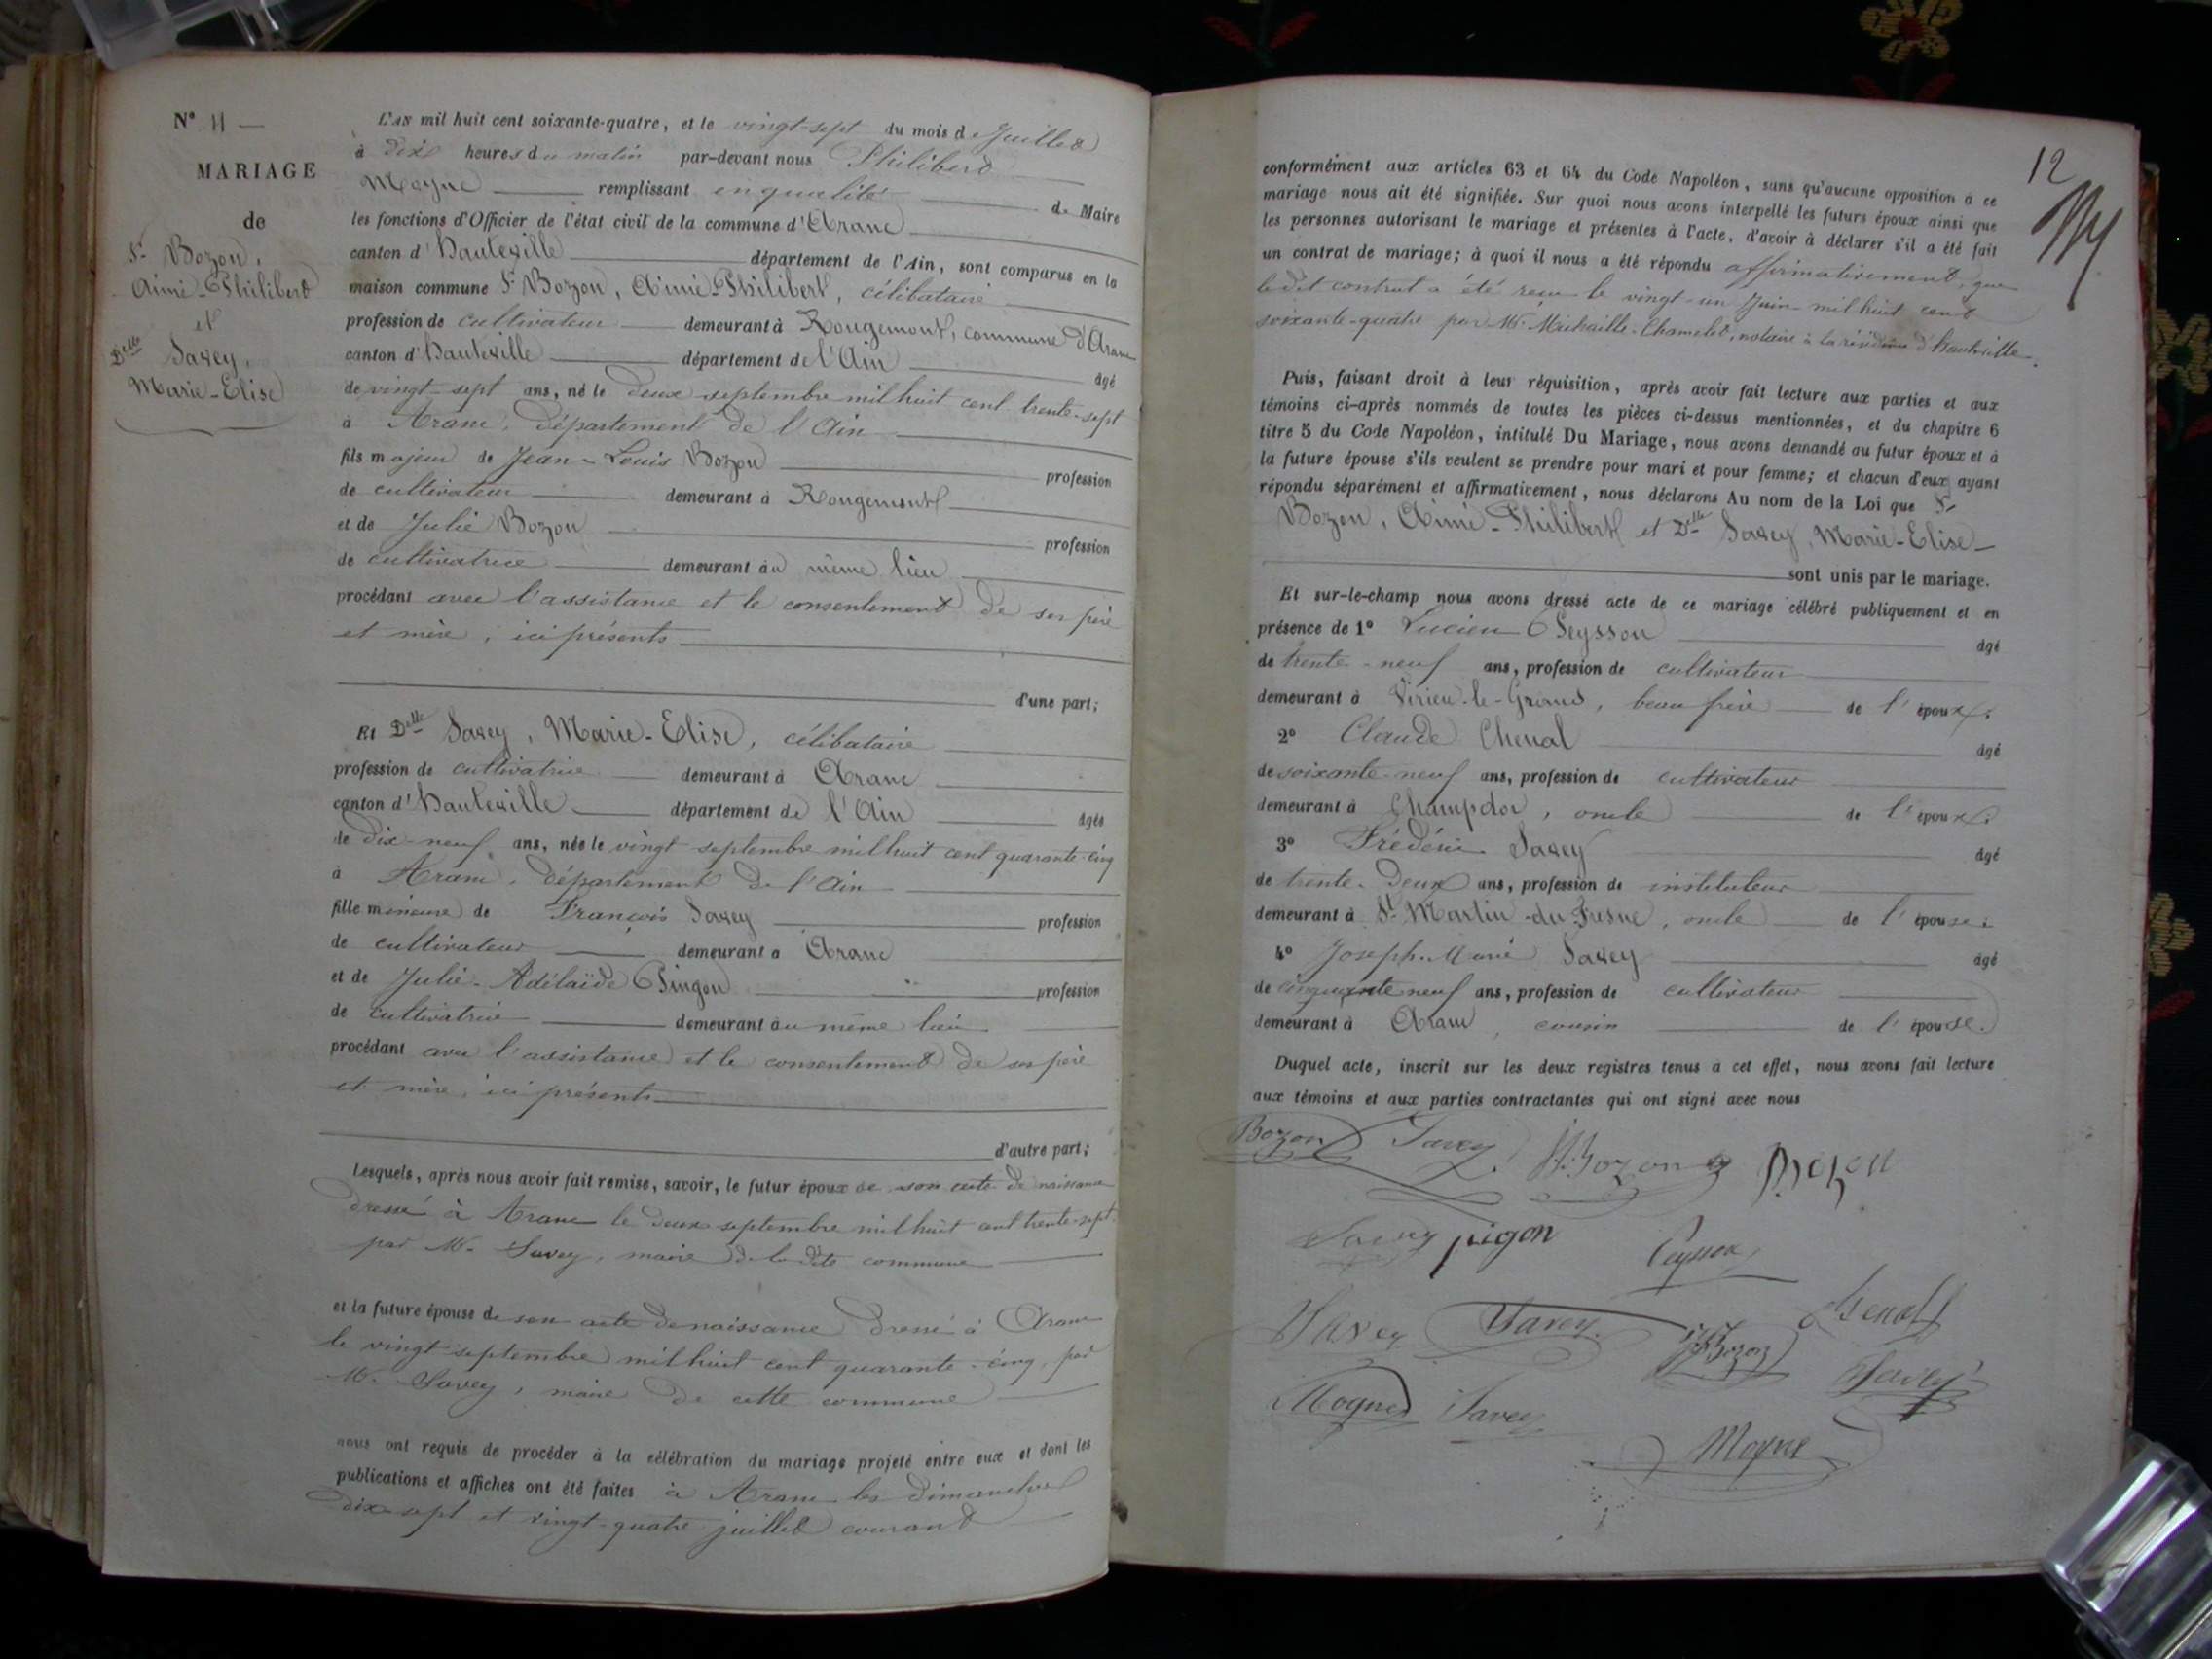 N° 11 —
MARIAGE
de
Sr Bozon,
Aimé-Philibert
et
Delle Savey,
Marie-Elise
L'AN mil huit cent soixante-quatre, et le vingt-sept du mois de Juillet
à dix heures du matin par-devant nous Philibert
Moyne remplissant en qualité de Maire
les fonctions d'Officier de l'état civil de la commune d'Aranc
canton d'hauteville département de l'Ain, sont comparus en la
maison commune Sr Bozon, Aimé-Philibert, célibataire
profession de cultivateur demeurant à Rougemont, commune d'Aranc
canton d'hauteville département de l'Ain âgé
de vingt-sept ans, né le deux septembre mil huit cent trente-sept
à Aranc, département de l'Ain
fils majeur de Jean-Louis Bozon profession
de cultivateur demeurant à Rougemont
et de Julie Bozon profession
de cultivatrice demeurant au même lieu
procédant avec l'assistance et le consentement de ses père
et mère, ici présents
d'une part;
Et Delle Savey, Marie-Elise, célibataire
profession de cultivatrice demeurant à Aranc
canton d'hauteville département de l'Ain âgée
de dix-neuf ans, née le vingt septembre mil huit cent quarante-cinq
à Aranc, département de l'Ain
fille mineure de François Savey profession
de cultivateur demeurant à Aranc
et de Julie-Adélaïde Pingon profession
de cultivatrice demeurant au même lieu
procédant avec l'assistance et le consentement de ses père
et mère, ici présents
d'autre part;
Lesquels, après nous avoir fait remise, savoir, le futur époux de son acte de naissance
dressé à Aranc le deux septembre mil huit cent trente-sept
par M. Savey, maire de la dite commune
et la future épouse de son acte de naissance dressé à Aranc
le vingt septembre mil huit cent quarante-cinq, par
M. Savey, maire de cette commune
nous ont requis de procéder à la célébration du mariage projeté entre eux et dont les
publications et affiches ont été faites à Aranc les dimanches
dix-sept et vingt-quatre juillet courant
12
conformément aux articles 63 et 64 du Code Napoléon, sans qu'aucune opposition à ce
mariage nous ait été signifiée. Sur quoi nous avons interpellé les futurs époux ainsi que
les personnes autorisant le mariage et présentes à l'acte, d'avoir à déclarer s'il a été fait
un contrat de mariage; à quoi il nous a été répondu affirmativement, que
le dit contrat a été reçu le vingt-un Juin mil huit cent
soixante-quatre par M. Michaille-Chamelet, notaire à la résidence d'hauteville.
Puis, faisant droit à leur réquisition, après avoir fait lecture aux parties et aux
témoins ci-après nommés de toutes les pièces ci-dessus mentionnées, et du chapitre 6
titre 5 du Code Napoléon, intitulé Du Mariage, nous avons demandé au futur époux et à
la future épouse s'ils veulent se prendre pour mari et pour femme; et chacun d'eux ayant
répondu séparément et affirmativement, nous déclarons Au nom de la Loi que Sr
Bozon, Aimé-Philibert et Delle Savey, Marie-Elise
sont unis par le mariage.
Et sur-le-champ nous avons dressé acte de ce mariage célébré publiquement et en
présence de 1° Lucien Peysson âgé
de trente-neuf ans, profession de cultivateur
demeurant à Virieu-le-Grand, beau frère de l'époux;
2° Claude Chenal âgé
de soixante-neuf ans, profession de cultivateur
demeurant à Champdor, oncle de l'époux;
3° Frédéric Savey âgé
de trente-deux ans, profession de instituteur
demeurant à St Martin-du-Fresne, oncle de l'épouse;
4° Joseph-Marie Savey âgé
de cinquante neuf ans, profession de cultivateur
demeurant à Aranc, cousin de l'épouse.
Duquel acte, inscrit sur les deux registres tenus à cet effet, nous avons fait lecture
aux témoins et aux parties contractantes qui ont signé avec nous
Bozon Savey Bozon Bozon
Savey pigon Peysson
Savey Savey Bozon Chenal
Moyne Savey Savey
Moyne